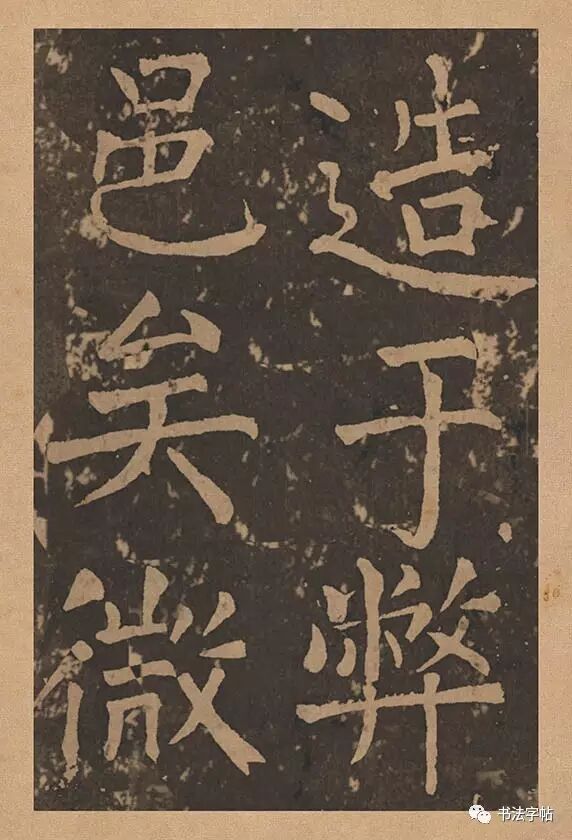 造于弊
邑矣微
书法字帖